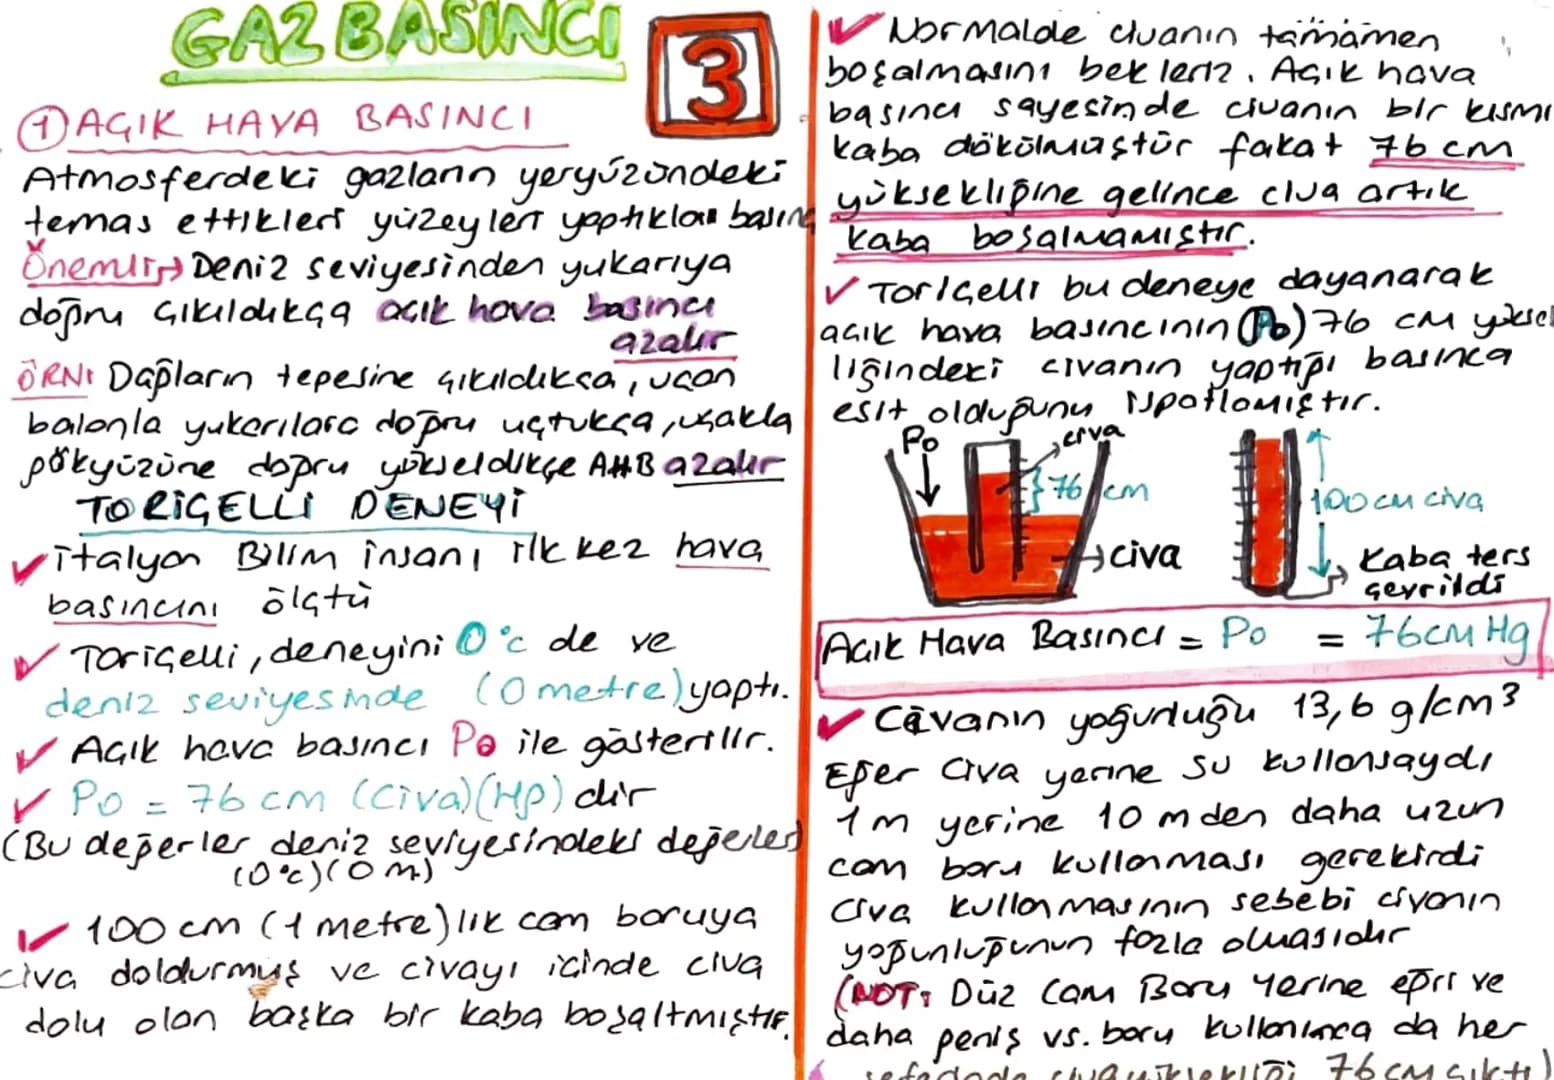 GAZ BASINCI
3
1 AÇIK HAVA BASINCI
Atmosferdeki gazların yeryüzündeki
temas ettikleri yüzeyleri yaptıkları basınç
Önemli → Deniz seviyesinden yukarıya
doğru çıkıldıkça açık hava basıncı
azalır
ÖRN: Dağların tepesine çıkıldıkça, uçan
balonla yukarılara doğru uçtukça, uçakla
gökyüzüne doğru yükseldikçe AHB azalır
TORİÇELLİ DENEYİ
✓ İtalyan Bilim İnsanı ilk kez hava
basıncını ölçtü
✓ Toriçelli, deneyini 0 °c de ve
deniz seviyesinde (0 metre) yaptı.
✓ Açık hava basıncı Po ile gösterilir.
✓ Po = 76 cm (Civa)(Hg) dır
(Bu değerler deniz seviyesindeki değerler)
(0 °c)(0 m)
✓ 100 cm (1 metre) lik cam boruya
civa doldurmuş ve civayı içinde civa
dolu olan başka bir kaba boşaltmıştır.
✓ Normalde civanın tamamen
boşalmasını bekleriz. Açık hava
basıncı sayesinde civanın bir kısmı
kaba dökülmüştür fakat 76 cm
yüksekliğine gelince civa artık
kaba boşalmamıştır.
✓ Toriçelli bu deneye dayanarak
açık hava basıncının (Po) 76 cm yüksek
liğindeki civanın yaptığı basınca
eşit olduğunu ispatlamıştır.
Po
civa
76 cm
civa
100 cm civa
Kaba ters
çevrildi
Açık Hava Basıncı = Po = 76cm Hg
✓ Civanın yoğunluğu 13,6 g/cm³
Eğer Civa yerine su kullansaydı
1 m yerine 10 m den daha uzun
cam boru kullanması gerekirdi
Civa kullanmasının sebebi civanın
yoğunluğunun fazla olmasıdır
(NOT: Düz Cam Boru Yerine eğri ve
daha geniş vs. boru kullanınca da her
seferinde civa yüksekliği 76 cm çıktı)